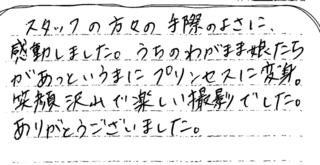 スタッフの方々の手際のよさに、
感動しました。うちのわがまま娘たち
があっというまにプリンセスに変身。
笑顔沢山で楽しい撮影でした。
ありがとうございました。